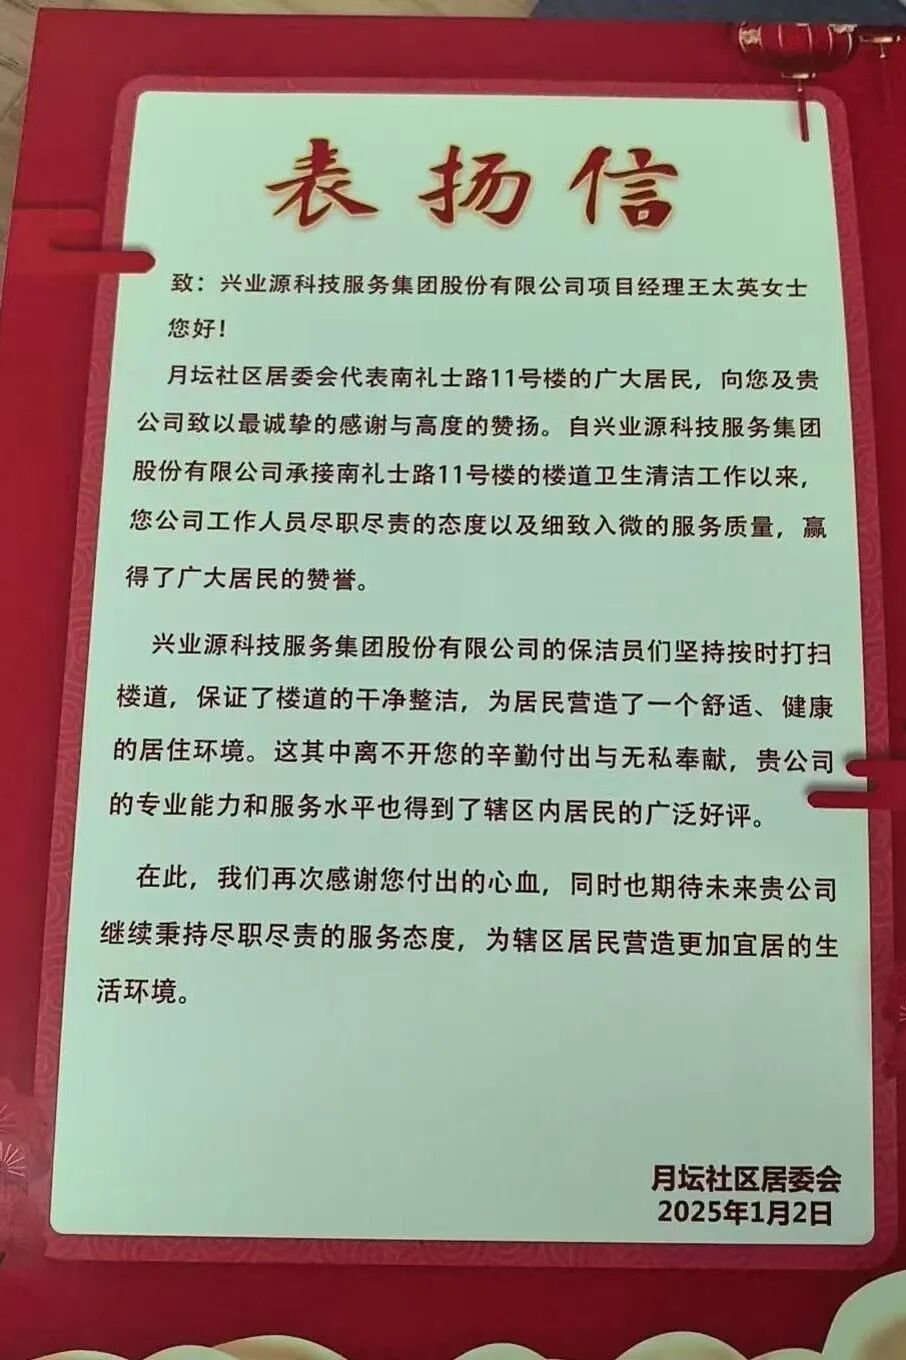 表扬信
致：兴业源科技服务集团股份有限公司项目经理王太英女士
您好！
月坛社区居委会代表南礼士路11号楼的广大居民，向您及贵
公司致以最诚挚的感谢与高度的赞扬。自兴业源科技服务集团
股份有限公司承接南礼士路11号楼的楼道卫生清洁工作以来，
您公司工作人员尽职尽责的态度以及细致入微的服务质量，赢
得了广大居民的赞誉。
兴业源科技服务集团股份有限公司的保洁员们坚持按时打扫
楼道，保证了楼道的干净整洁，为居民营造了一个舒适、健康
的居住环境。这其中离不开您的辛勤付出与无私奉献，贵公司
的专业能力和服务水平也得到了辖区内居民的广泛好评。
在此，我们再次感谢您付出的心血，同时也期待未来贵公司
继续秉持尽职尽责的服务态度，为辖区居民营造更加宜居的生
活环境。
月坛社区居委会
2025年1月2日